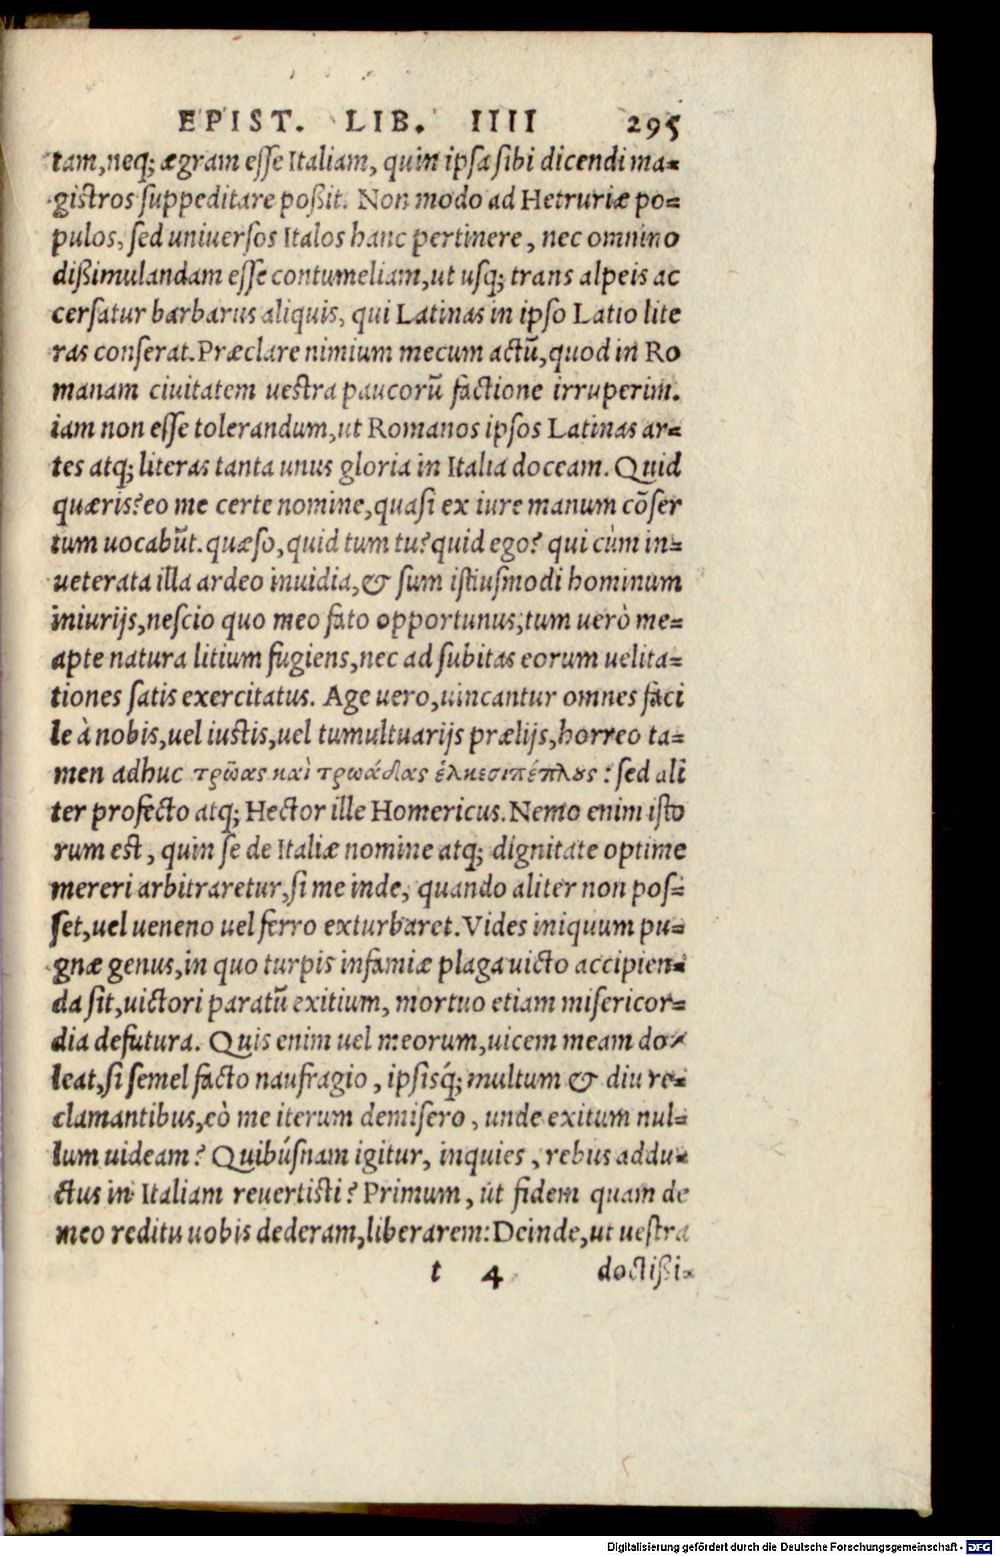 EPIST. LIB. IIII 295
tam,neq; ægram esse Italiam, quin ipsa sibi dicendi ma-
gistros suppeditare poßit. Non modo ad Hetruriæ po-
pulos, sed uniuersos Italos hanc pertinere, nec omnino
dißimulandam esse contumeliam,ut usq; trans alpeis ac
cersatur barbarus aliquis, qui Latinas in ipso Latio lite
ras conserat. Præclare nimium mecum actū,quod in Ro
manam ciuitatem uestra paucorū factione irruperim.
iam non esse tolerandum,ut Romanos ipsos Latinas ar-
tes atq; literas tanta unus gloria in Italia doceam. Quid
quæris?eo me certe nomine,quasi ex iure manum cōser
tum uocabūt. quæso,quid tum tu?quid ego? qui cùm in-
ueterata illa ardeo inuidia,& sum istiusmodi hominum
iniurijs,nescio quo meo fato opportunus,tum uerò me-
apte natura litium fugiens,nec ad subitas eorum uelita-
tiones satis exercitatus. Age uero,uincantur omnes faci
le à nobis,uel iustis,uel tumultuarijs prælijs,horreo ta-
men adhuc τρῶας καὶ τρωάδας ἑλκεσιπέπλους : sed ali
ter profecto atq; Hector ille Homericus. Nemo enim isto
rum est, quin se de Italiæ nomine atq; dignitate optime
mereri arbitraretur,si me inde, quando aliter non pos-
set,uel ueneno uel ferro exturbaret. Vides iniquum pu-
gnæ genus,in quo turpis infamiæ plaga uicto accipien-
da sit,uictori paratū exitium, mortuo etiam misericor-
dia defutura. Quis enim uel meorum,uicem meam do-
leat,si semel facto naufragio, ipsisq́; multum & diu re-
clamantibus,eò me iterum demisero, unde exitum nul-
lum uideam? Quibúsnam igitur, inquies, rebus addu-
ctus in Italiam reuertisti? Primum, ut fidem quam de
meo reditu uobis dederam,liberarem: Deinde,ut uestra
t 4 doctißi-
Digitalisierung gefördert durch die Deutsche Forschungsgemeinschaft - DFG